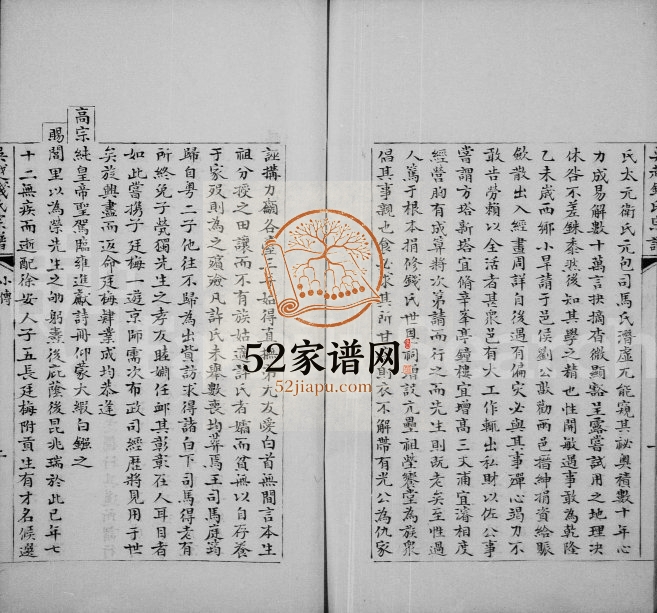 氏太元衛氏元包司馬氏潛虛尤能窺其祕奧積數十年心
力成易解數十萬言抉摘杳微顯豁呈露嘗試用之地理決
休咎不差銖黍然後知其學之精也性開敏遇事敢為乾隆
乙未歲西鄉小旱請于邑侯劉公敦勸兩邑搢紳捐資給賑
斂散出入經畫周詳自後遇有偏災必與其事殫心竭力不
敢告勞賴以全活者甚眾邑有大工作輒出私財以佐公事
嘗謂方塔新塔宜脩辛峯亭鐘樓宜增高三丈浦宜濬相度
經營胸有成算將次第請而行之而先生則既老矣至性過
人篤于根本捐修錢氏世祠增設元壘祖塋饗堂為族眾
倡其事親也食必求其所甘衣不解帶有光公為仇家
誣搆力籲各
如得直
尤友愛白首無間言本生
祖分授之田讓而不有族姑適許氏者孀而貧無以自存養
于家歿則為之殯殮凡許氏未舉數喪均葬焉王司馬庭筠
歸自粵二子他往不歸為出貲訪求得諸白下司馬得老有
所終免子煢獨先生之孝友睦婣任卹其彰彰在人耳目者
如此嘗攜子廷梅一遊京師需次布政司經歷將見用于世
矣旋興盡而返命廷梅肄業成均恭逢
高宗純皇帝聖駕臨雍進獻詩冊仰蒙大緞白鏹之
賜閭里以為榮先生之劬躬燾後庇蔭後昆兆瑞於此已年七
十二無疾而逝配徐安人子五長廷梅附貢生有才名候選
小傳
52家谱网
52jiapu.com